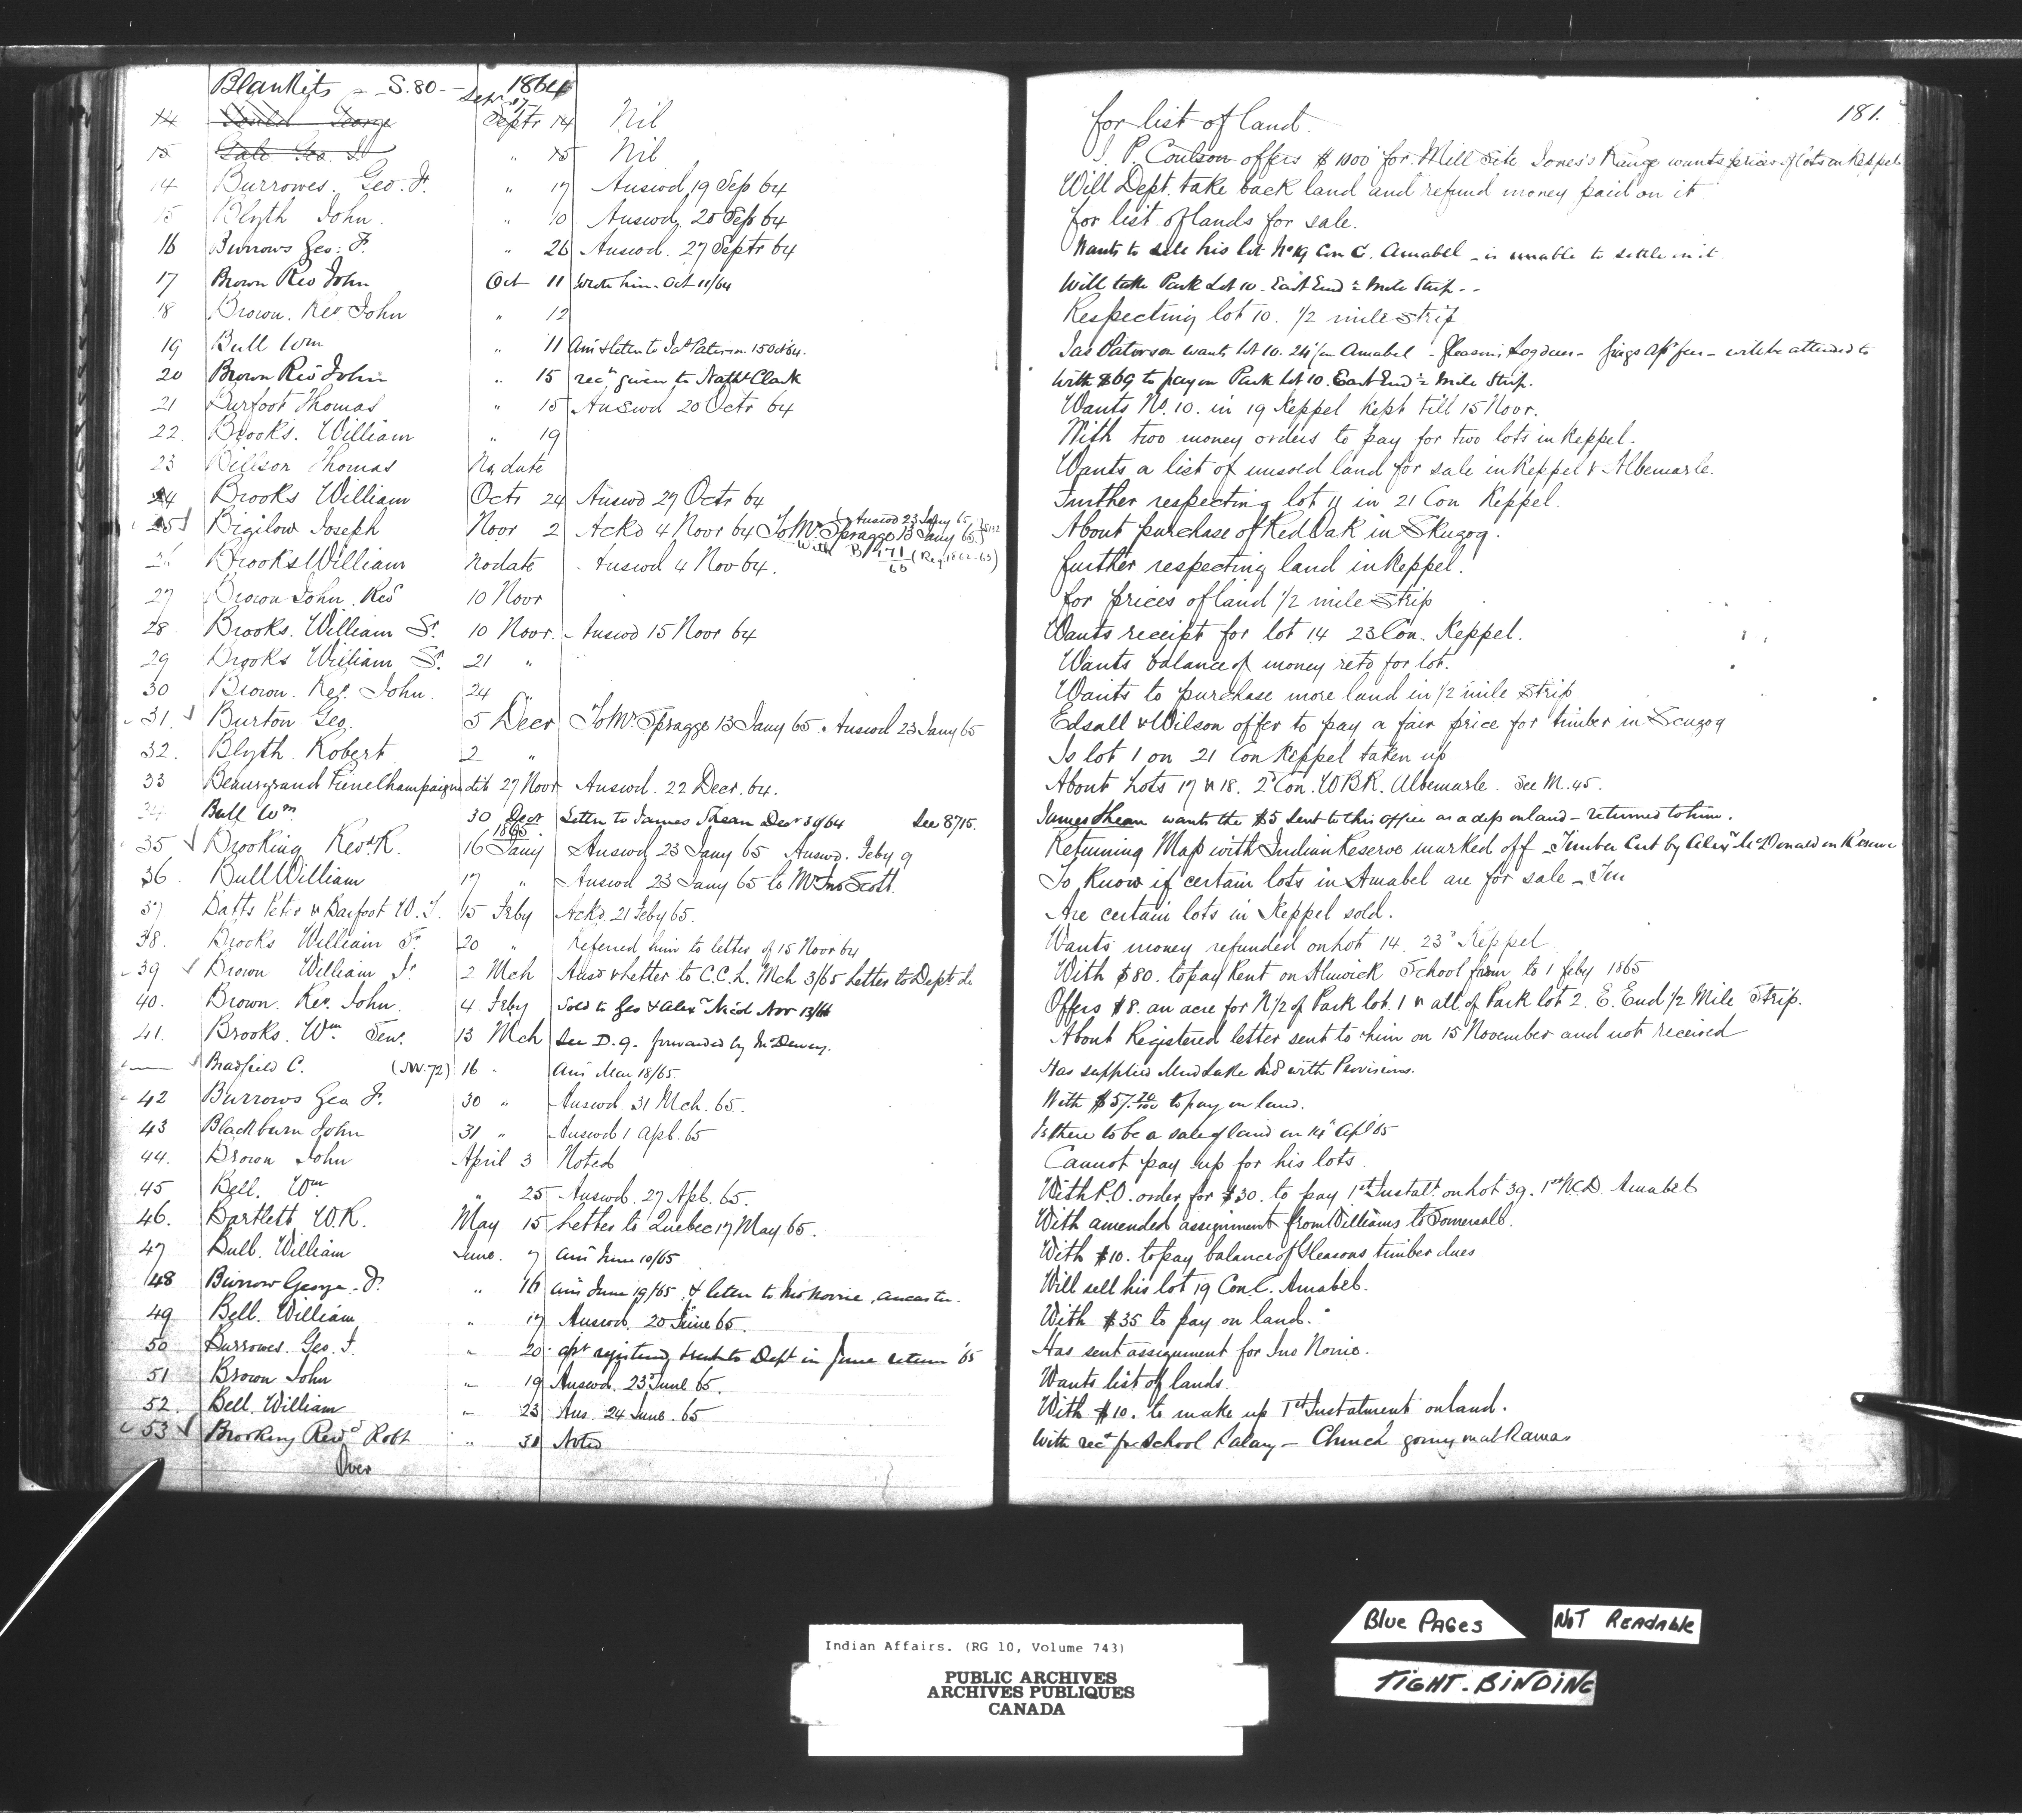 181.
Blankits - S. 80 - 1864
Sepr 17
14 Gould George Septr 14 Nil for list of land.
15 Gale Geo. " 15 Nil J. P. Coulson offers $1000 for Mill Site Jones's Range wants prices of lots in Keppel
14 Burrowes. Geo. F. " 17 Answd 19 Sep 64 Will Dept. take back land and refund money paid on it
15 Blyth John. " 10 Answd. 20 Sep 64 for list of lands for sale.
16 Burrows Geo: F. " 26 Answd. 27 Septr 64 Wants to sell his lot No 19 Con C. Amabel - is unable to settle on it
17 Brown Rev John Oct 11 Wrote him - Oct 11/64 Will take Park Lot 10. East End ½ Mile Strip - -
18 Brown. Rev. John " 12 Respecting lot 10. 1/2 mile Strip
19 Bull Wm " 11 Ansd & letter to Jas Paterson 15 Oct 64. Jas Paterson wants lot 10. 24 Con Amabel - Gleason's - will be attended to
20 Brown Rev John " 15 rect given to Nathl Clark With $69 to pay on Park Lot 10. East End ½ Mile Strip.
21 Burfoot Thomas " 15 Answd 20 Octr 64 Wants No. 10. in 19 Keppel kept till 15 Novr.
22. Brooks. William " 19 With two money orders to pay for two lots in Keppel.
23 Billson Thomas No date Wants a list of unsold land for sale in Keppel & Albemarle.
24 Brooks William Octr 24 Answd 29 Octr 64 Further respecting lot 11 in 21 Con Keppel.
25 Bigilow Joseph Novr 2 Ackd 4 Novr 64 To Mr. Spragge 13 Jany 65. Answd 23 Jany 65 About purchase of Red Oak in Skugog.
With B 471/65 (Reg. 1862-63)
26 Brooks William No date Answd 4 Nov 64. further respecting land in Keppel.
27 Brown John Revd 10 Novr for prices of land 1/2 mile Strip
28. Brooks. William Sr. 10 Novr. Answd 15 Novr 64 Wants receipt for lot 14 23 Con. Keppel.
29 Brooks William Sr. 21 " Wants balance of money retd for lot.
30 Brown. Rev. John. 24 " Wants to purchase more land in 1/2 mile Strip
31. Burton Geo. 5 Decr To Mr. Spragge 13 Jany 65. Answd 23 Jany 65 Edsall & Wilson offer to pay a fair price for timber in Scugog
32. Blyth Robert 2 " Is lot 1 on 21 Con Keppel taken up
33 Beaurgrand Fiene Champaigne dit 27 Novr Answd. 22 Decr. 64. About Lots 17 & 18. 2d Con. W B R. Albemarle. See M. 45.
34 Bull Wm. 30 Decr Letter to James Shean Decr 30/64 See 8715. James Shean wants the $5 sent to this office as a dep on land - returned to him.
1865
35 Brooking Revd. R. 16 Jany Answd 23 Jany 65 Answd. Feby 9 Returning Map with Indian Reserve marked off - Timber Cut by Alexr McDonald on Reserve
36. Bull William 17 " Answd 23 Jany 65 to Mr Jno Scott. To know if certain lots in Amabel are for sale -
37 Batts Peter & Barfoot W. T. 15 Feby Ackd. 21 Feby 65. Are certain lots in Keppel sold.
38. Brooks William Sr. 20 " Referred him to letter of 15 Novr 64 Wants money refunded on Lot 14. 23d Keppel
39 Brown William Jr 2 Mch Ansd & letter to C.C.L. Mch 3/65 Letter to Dept. do With $80. to pay Rent on Alnwick School farm to 1 feby 1865
40. Brown. Rev. John. 4. Feby Sold to Geo & Alexr Nicol Nov 13/66 Offers $8. an acre for N 1/2 of Park lot. 1 & all of Park lot 2. E. End 1/2 Mile Strip.
41. Brooks. Wm. Sen. 13 Mch See D. 9. forwarded by Mr Dewey. About Registered letter sent to him on 15 November and not received
Bradfield C. (SW. 72) 16 " Ansd Mar 18/65. Has supplied Mud Lake Inds with Provisions.
42 Burrows Geo F. 30 " Answd. 31 Mch. 65. With $57.70/100 to pay on land.
43 Blackburn John 31 " Answd 1 Apl. 65 Is there to be a sale of land on 14th Apl 65
44. Brown John April 3 Noted Cannot pay up for his lots
45 Bell. Wm " 25 Answd. 27 Apl. 65. With P.O. order for $30. to pay 1st Instalt. on Lot 39. 1st N.C.D. Amabel
46. Bartlett W.R. May 15 Letter to Quebec 17 May 65. With amended assignment from Williams to Somersall.
47 Bull. William June. 7 Ansd June 10/65 With $10. to pay balance of Gleasons timber dues
48 Burrow George. F. " 16 Ansd June 19/65 & letter to Mr Norrie, Ancaster. Will sell his lot 19 Con. C. Amabel.
49 Bell. William " 17 Answd. 20 June 65. With $35 to pay on land.
50 Burrowes. Geo. F. " 20 asst registered & sent to Dept in June return '65 Has sent assignment for Jno Norrie.
51 Brown John " 19 Answd. 23 June 65. Wants list of lands.
52. Bell. William " 23 Ans. 24 June. 65 With $10. to make up 1st Instalment on land.
53 Brooking Revd Robt " 30 Noted With rect for School Salary - Church going on at Rama
Over
Blue Pages
Not Readable
Tight. Binding
Indian Affairs. (RG 10, Volume 743)
PUBLIC ARCHIVES
ARCHIVES PUBLIQUES
CANADA